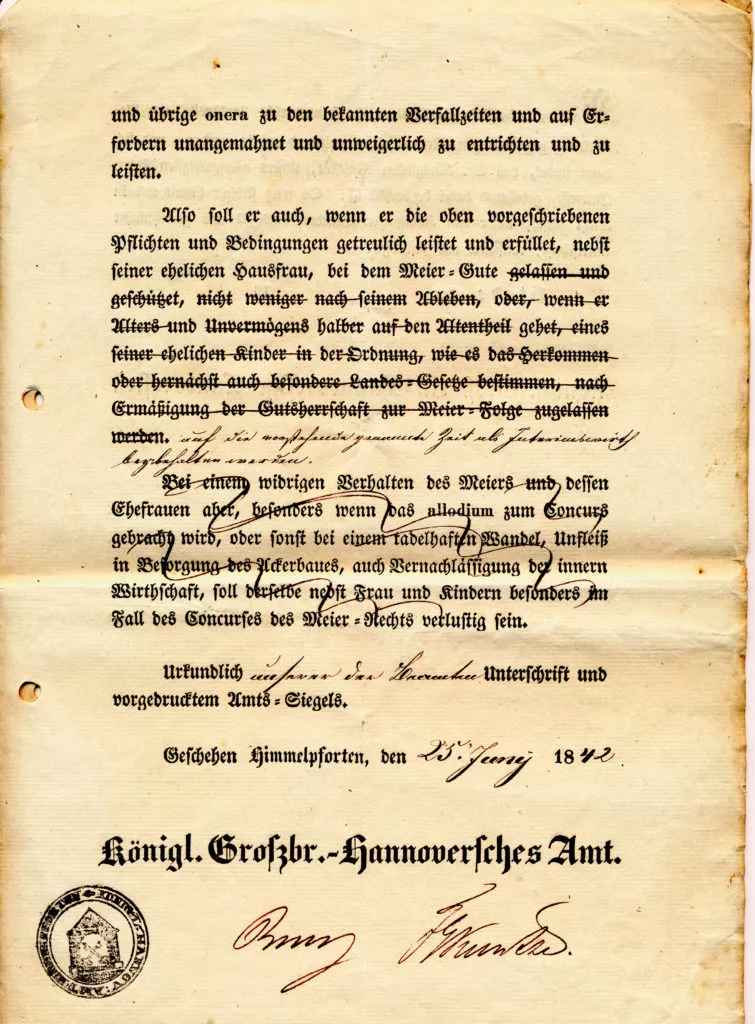 und übrige onera zu den bekannten Verfallzeiten und auf Er-
fordern unangemahnet und unweigerlich zu entrichten und zu
leisten.
Also soll er auch, wenn er die oben vorgeschriebenen
Pflichten und Bedingungen getreulich leistet und erfüllet, nebst
seiner ehelichen Hausfrau, bei dem Meier-Gute gelassen und
geschützet, nicht weniger nach seinem Ableben, oder, wenn er
Alters und Unvermögens halber auf den Altentheil gehet, eines
seiner ehelichen Kinder in der Ordnung, wie es das Herkommen
oder hernächst auch besondere Landes-Gesetze bestimmen, nach
Ermäßigung der Gutsherrschaft zur Meier-Folge zugelassen
werden. auf die vorstehende genannte Zeit als Interimswirth
beybehalten werden.
Bei einem widrigen Verhalten des Meiers und dessen
Ehefrauen aber, besonders wenn das allodium zum Concurs
gebracht wird, oder sonst bei einem tadelhaften Wandel, Unfleiß
in Besorgung des Ackerbaues, auch Vernachlässigung der innern
Wirthschaft, soll derselbe nebst Frau und Kindern besonders im
Fall des Concurses des Meier-Rechts verlustig sein.
Urkundlich unserer der Beamten Unterschrift und
vorgedrucktem Amts-Siegels.
Geschehen Himmelpforten, den 25. Juny 1842.
Königl. Groszbr.-Hannoversches Amt.
KÖNIGL. HANNOV. AMT